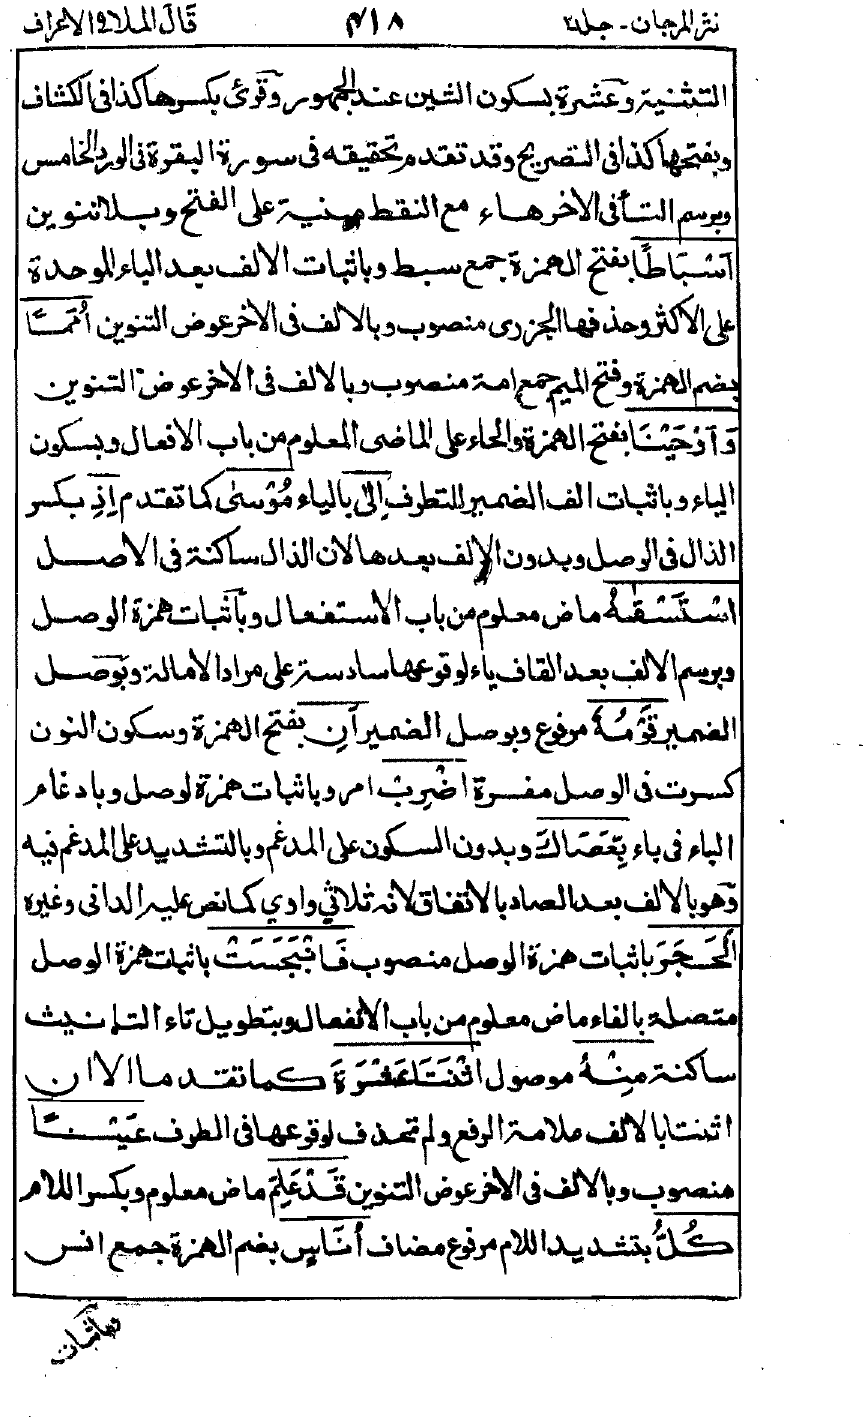 نثر المرجان - جلد٢ ٤١٨ قال الملا ٩ الاعراف
التثنية وعَشْرة بسكون الشين عند الجمهور وقرئ بكسرها كذا فى الكشاف
وبفتحها كذا فى التصريح وقد تقدم تحقيقه فى سورة البقرة فى الورد الخامس
وبرسم التاء فى الاخر هاء مع النقط مبنية على الفتح وبلا تنوين
اَسْبَاطًا بفتح الهمزة جمع سبط وباثبات الالف بعد الباء الموحدة
على الاكثر وحذفها الجزرى منصوب وبالالف فى الاخر عوض التنوين اُمَمًا
بضم الهمزة وفتح الميم جمع امة منصوب وبالالف فى الاخر عوض التنوين
وَاَوْحَيْنَا بفتح الهمزة والحاء على الماضى المعلوم من باب الافعال وبسكون
الياء وباثبات الف الضمير للتطرف اِلٰى بالياء مُوْسٰى كما تقدم اِذِ بكسر
الذال فى الوصل وبدون الالف بعدها لان الذال ساكنة فى الاصل
اسْتَسْقٰىهُ ماض معلوم من باب الاستفعال وباثبات همزة الوصل
وبرسم الالف بعد القاف ياء لوقوعها سادسة على مراد الامالة وبوصل
الضمير قَوْمُهٗ مرفوع وبوصل الضمير اَنِ بفتح الهمزة وسكون النون
كسرت فى الوصل مفسرة اضْرِبْ امر وباثبات همزة لوصل وبادغام
الباء فى باء بِّعَصَاكَ وبدون السكون على المدغم وبالتشديد على المدغم فيه
وهو بالالف بعد الصاد بالاتفاق لانه ثلاثي واوي كما نص عليه الدانى وغيره
الْحَجَرَ باثبات همزة الوصل منصوب فَانْۢبَجَسَتْ باثبات همزة الوصل
متصلة بالفاء ماض معلوم من باب الانفعال وبتطويل تاء التانيث
ساكنة مِنْهُ موصول اثْنَتَا عَشْرَةَ كما تقدما الا ان
اثنتا بالالف علامة الرفع ولم تحذف لوقوعها فى الطرف عَيْنًا
منصوب وبالالف فى الاخر عوض التنوين قَدْ عَلِمَ ماض معلوم وبكسر اللام
كُلُّ بتشديد اللام مرفوع مضاف اُنَاسٍ بضم الهمزة جمع انس
وباثبات